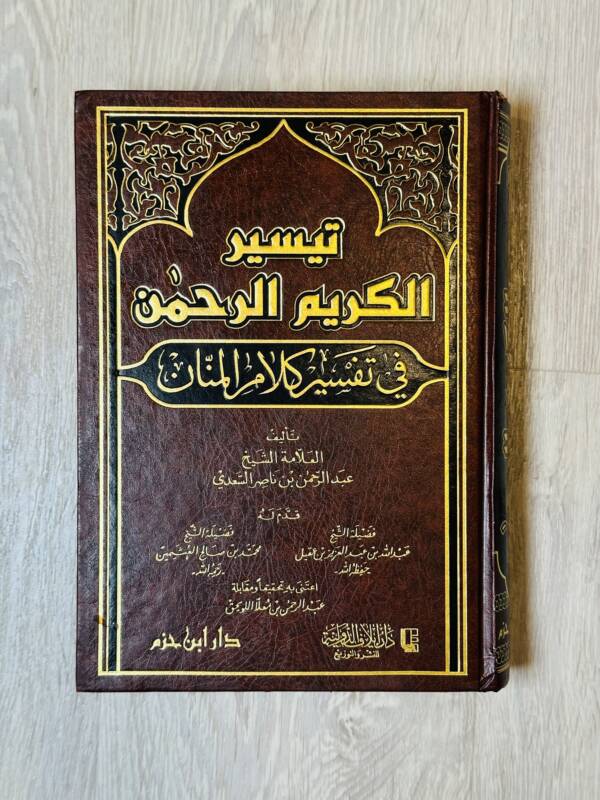 تيسير
الكريم الرحمٰن
في تفسير كلام المنّان
تأليف
العلامة الشيخ
عبد الرحمن بن ناصر السعدي
قدم له
فضيلة الشيخ
عبد الله بن عبد العزيز بن عقيل
حفظه الله-
فضيلة الشيخ
محمد بن صالح العثيمين
-رحمه الله-
اعتنى به تحقيقا ومقابلة
عبد الرحمن بن معلا اللويحق
للنشر والتوزيع
دار ابن حزم